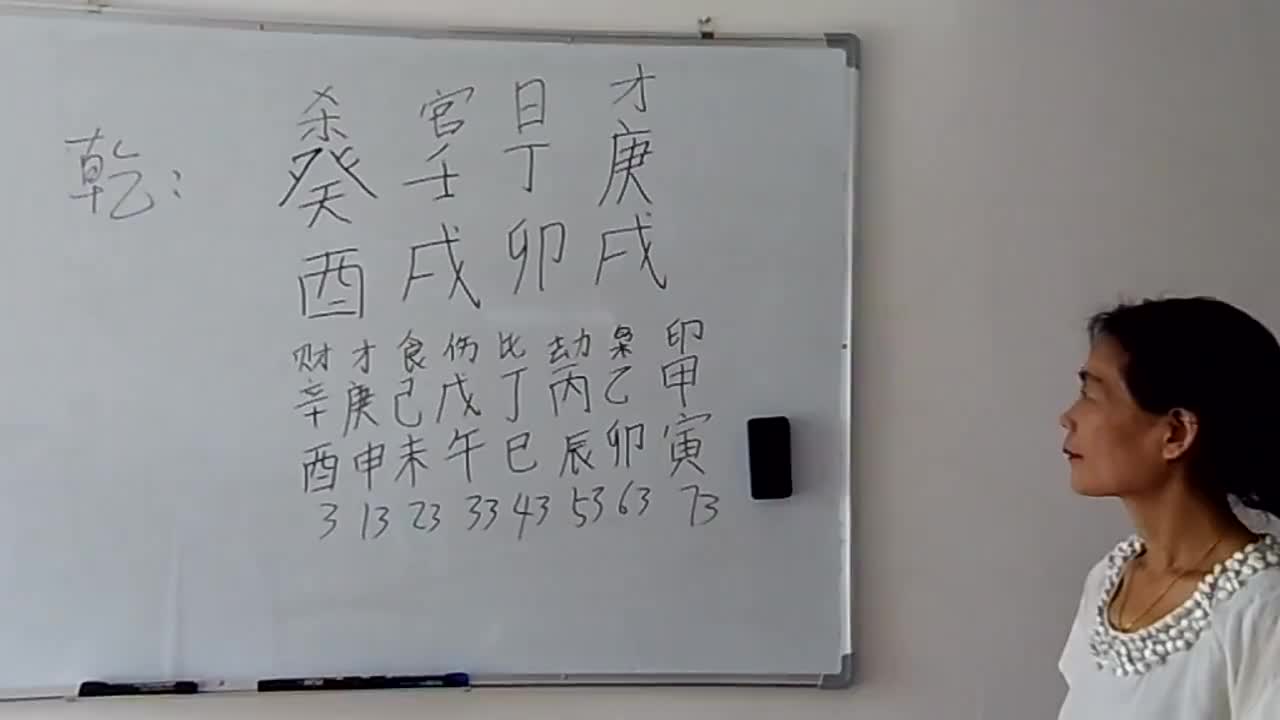 杀 官 日 才
乾: 癸 壬 丁 庚
酉 戌 卯 戌
财 才 食 伤 比 劫 枭 印
辛 庚 己 戊 丁 丙 乙 甲
酉 申 未 午 巳 辰 卯 寅
3 13 23 33 43 53 63 73